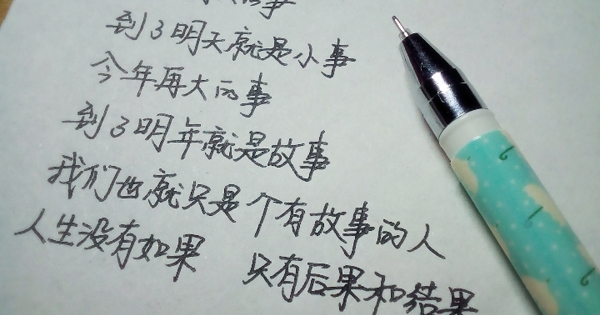 的事
到了明天就是小事
今年再大的事
到了明年就是故事
我们也就只是个有故事的人
人生没有如果 只有后果和结果